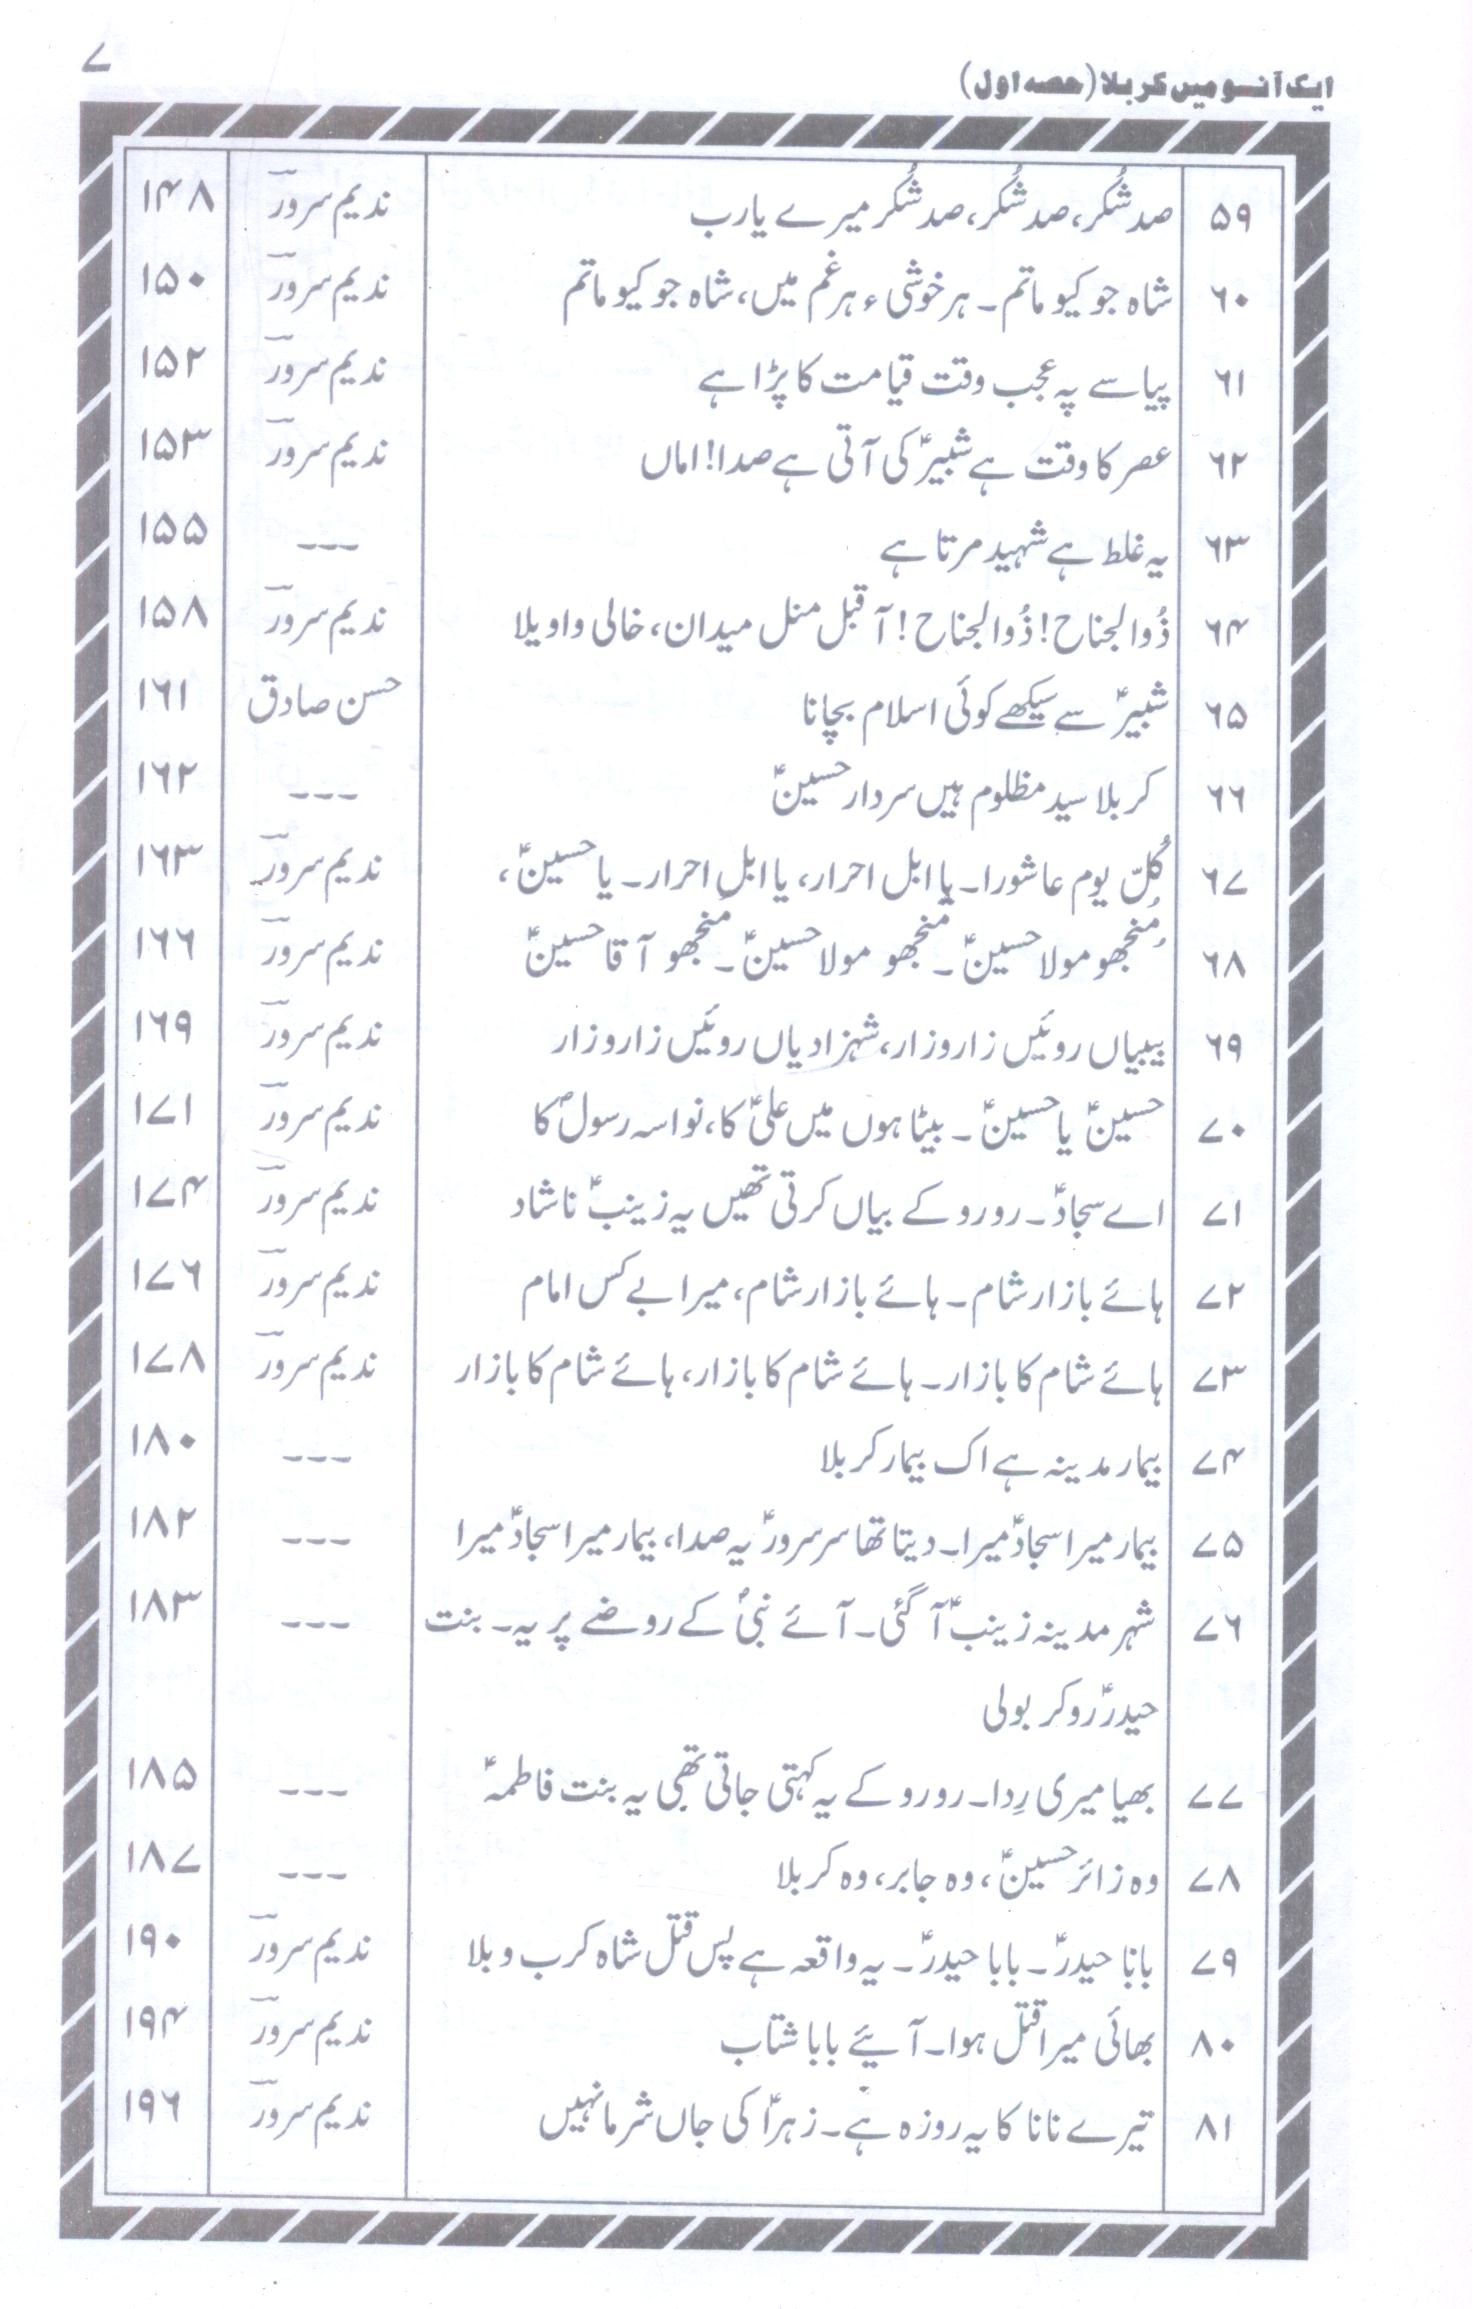 ایک آنسو میں کربلا (حصہ اول) ۷
۵۹ صد شُکر، صد شُکر، صد شُکر میرے یا رب ندیم سرور ۱۴۸
۶۰ شاہ جو کیو ماتم۔ ہر خوشی ء ہر غم میں، شاہ جو کیو ماتم ندیم سرور ۱۵۰
۶۱ پیاسے پہ عجب وقت قیامت کا پڑا ہے ندیم سرور ۱۵۲
۶۲ عصر کا وقت ہے شبیرؑ کی آتی ہے صدا! اماں ندیم سرور ۱۵۳
۶۳ یہ غلط ہے شہید مرتا ہے --- ۱۵۵
۶۴ ذُوالجناح! ذُوالجناح! آ قبل منل میدان، خالی واویلا ندیم سرور ۱۵۸
۶۵ شبیرؑ سے سیکھے کوئی اسلام بچانا حسن صادق ۱۶۱
۶۶ کربلا سید مظلوم ہیں سردار حسینؑ --- ۱۶۲
۶۷ کُلّ یوم عاشورا۔ یا ابل احرار، یا ابل احرار۔ یا حسینؑ، ندیم سرور ۱۶۳
۶۸ مُنجھو مولا حسینؑ۔ مُنجھو مولا حسینؑ۔ مُنجھو آقا حسینؑ ندیم سرور ۱۶۶
۶۹ بیبیاں روئیں زار و زار، شہزادیاں روئیں زار و زار ندیم سرور ۱۶۹
۷۰ حسینؑ یا حسینؑ۔ بیٹا ہوں میں علیؑ کا، نواسہ رسولؐ کا ندیم سرور ۱۷۱
۷۱ اے سجادؑ۔ رو رو کے بیاں کرتی تھیں یہ زینبؑ ناشاد ندیم سرور ۱۷۴
۷۲ ہائے بازار شام۔ ہائے بازار شام، میرا بے کس امام ندیم سرور ۱۷۶
۷۳ ہائے شام کا بازار۔ ہائے شام کا بازار، ہائے شام کا بازار ندیم سرور ۱۷۸
۷۴ بیمار مدینہ ہے اک بیمار کربلا --- ۱۸۰
۷۵ بیمار میرا سجادؑ میرا۔ دیتا تھا سر سرورؑ یہ صدا، بیمار میرا سجادؑ میرا --- ۱۸۲
۷۶ شہر مدینہ زینبؑ آ گئی۔ آئے نبیؐ کے روضے پر یہ۔ بنت --- ۱۸۳
حیدرؑ رو کر بولی
۷۷ بھیا میری رِدا۔ رو رو کے یہ کہتی جاتی تھی یہ بنت فاطمہؑ --- ۱۸۵
۷۸ وہ زائر حسینؑ، وہ جابر، وہ کربلا --- ۱۸۷
۷۹ بابا حیدرؑ۔ بابا حیدرؑ۔ یہ واقعہ ہے پس قتل شاہ کرب و بلا ندیم سرور ۱۹۰
۸۰ بھائی میرا قتل ہوا۔ آئیے بابا شتاب ندیم سرور ۱۹۴
۸۱ تیرے نانا کا یہ روزہ ہے۔ زہراؑ کی جاں شرما نہیں ندیم سرور ۱۹۶